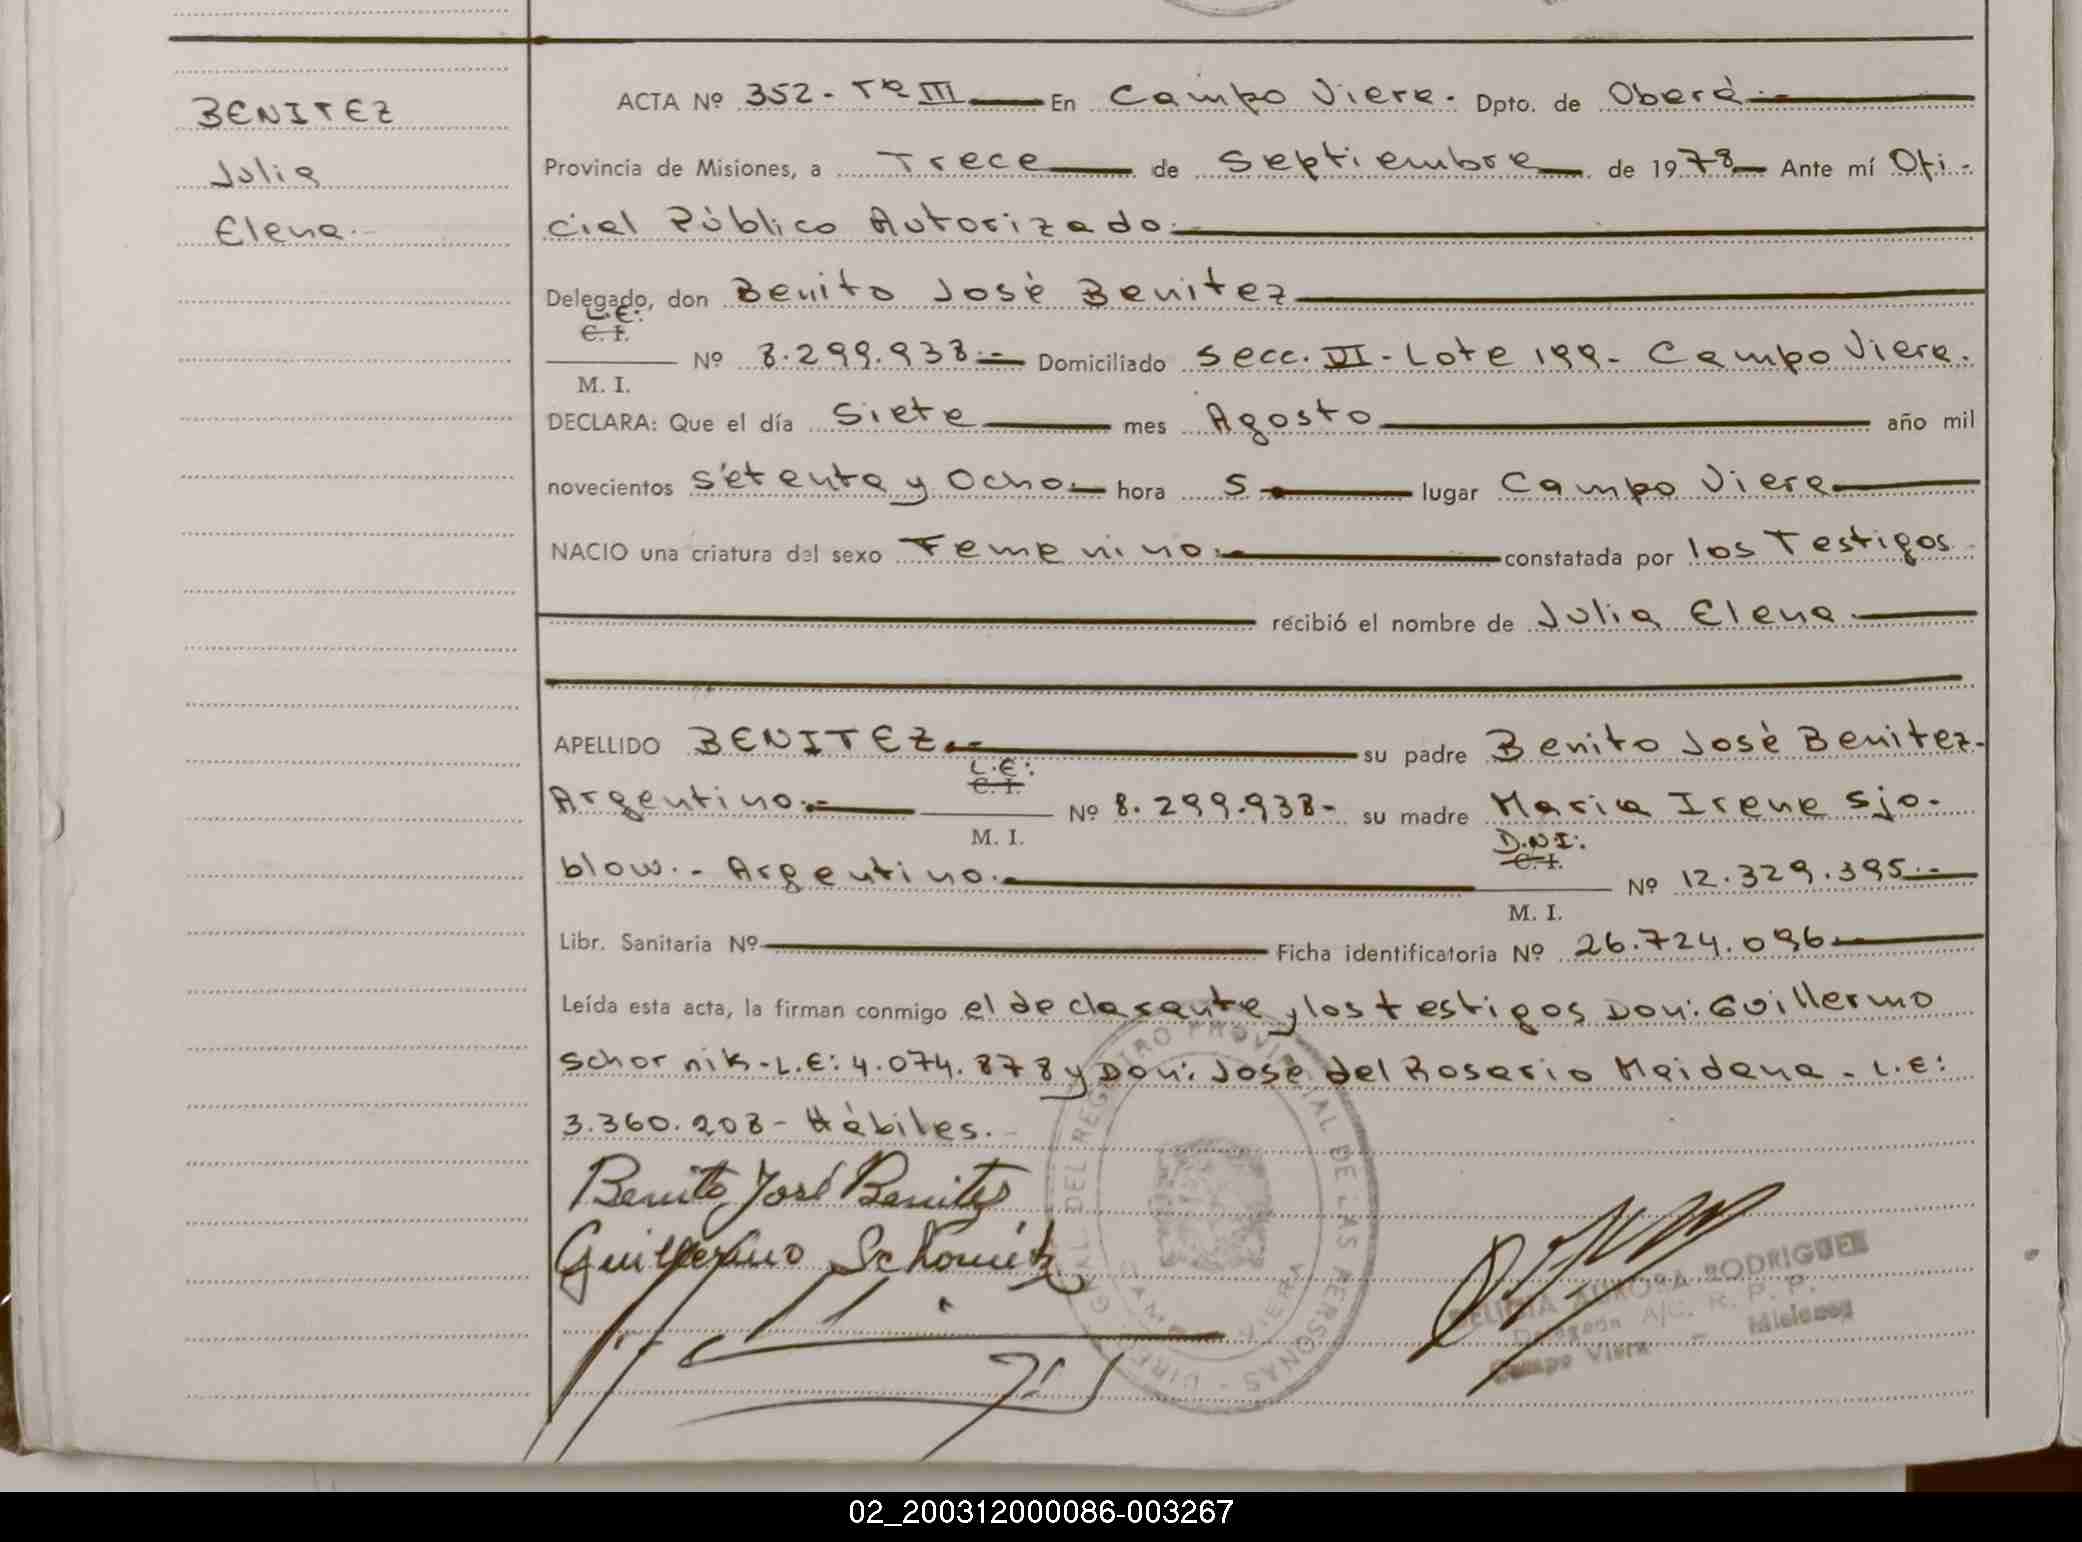 BENITEZ
Julia
Elena.
ACTA Nº 352- Tº III En Campo Viera. Dpto. de Oberá.
Provincia de Misiones, a Trece de Septiembre de 1978 Ante mí Ofi-
cial Público Autorizado.
Delegado, don Benito José Benitez
L.E:
C. I.
Nº 8.299.938.- Domiciliado Secc. VI - Lote 199- Campo Viera.
M. I.
DECLARA: Que el día Siete mes Agosto año mil
novecientos Setenta y Ocho hora 5 lugar Campo Viera
NACIO una criatura del sexo Femenino.- constatada por los Testigos
recibió el nombre de Julia Elena
APELLIDO BENITEZ.- su padre Benito José Benitez-
L.E:
C. I.
Argentino.- Nº 8.299.938- su madre Maria Irene Sjo-
M. I.
D.N.I:
C. I.
blow.- Argentino. Nº 12.329.395.-
M. I.
Libr. Sanitaria Nº Ficha identificatoria Nº 26.724.096
Leída esta acta, la firman conmigo el declarante y los testigos Don: Guillermo
Schornik-L.E: 4.074.878 y Don: José del Rosario Maidana - L.E:
3.360.208- Hábiles.-
Benito José Benitez
Guillermo
DIRECCION GRAL DEL REGISTRO PROVINCIAL DE LAS PERSONAS
CAMPO VIERA
DELICIA AURORA RODRIGUEZ
A/C. R. P. P.
Campo Viera - Misiones
02_200312000086-003267